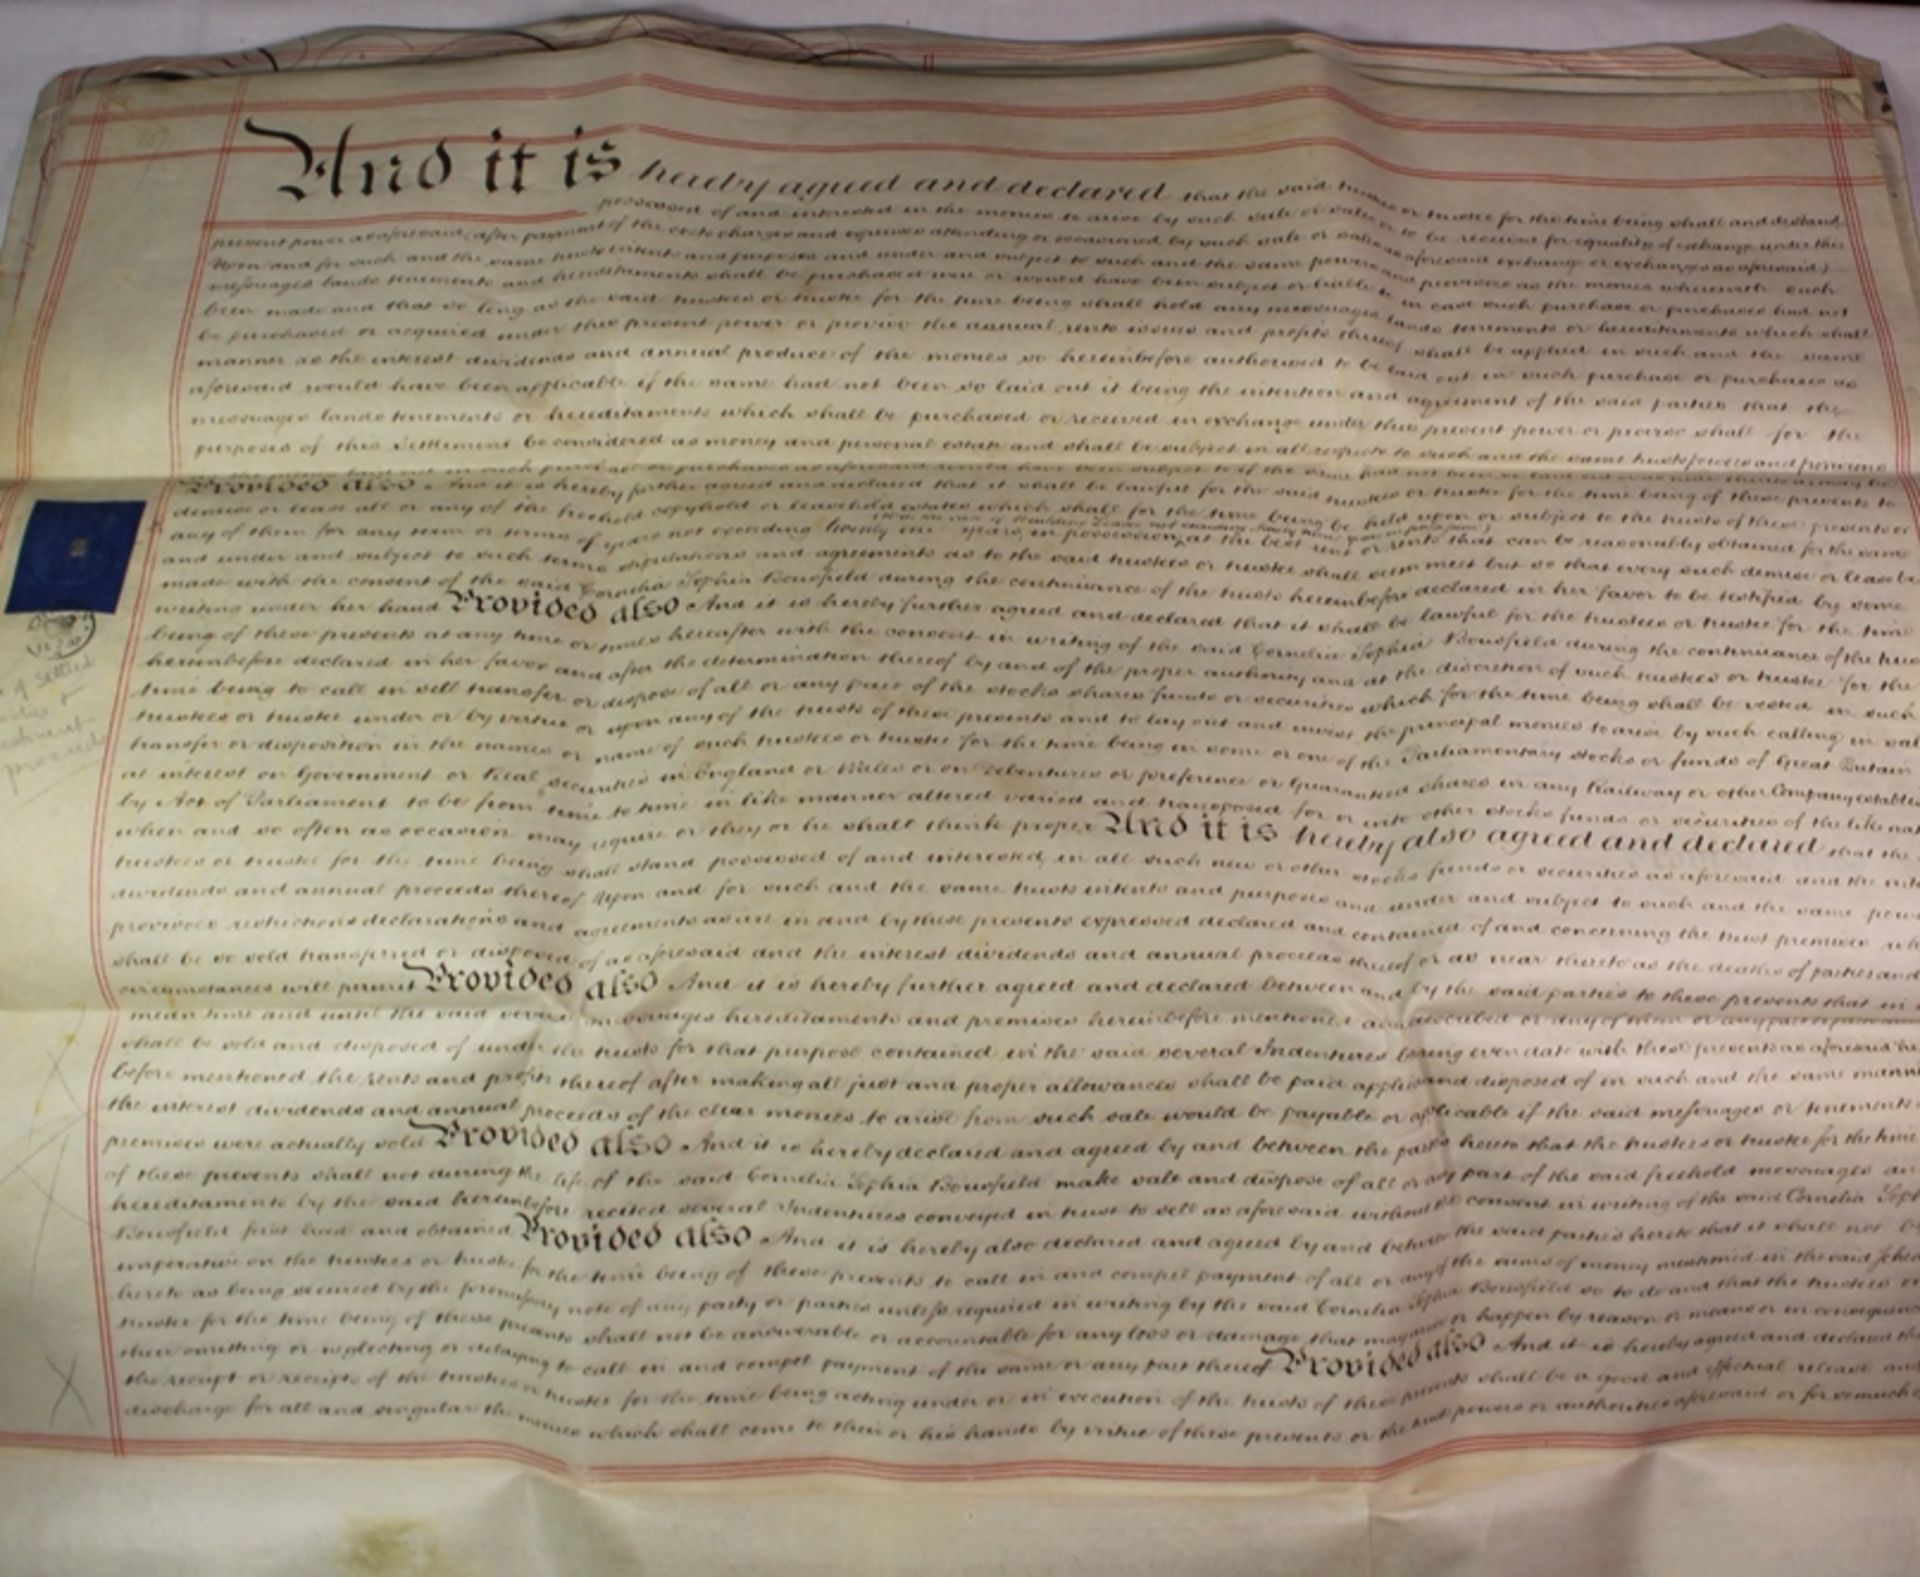 And it is hereby agreed and declared that the said trustees or trustee for the time being shall and do stand
possessed of and interested in the monies to arise by such sale or sales or to be received for equality of exchange under this
present power as aforesaid (after payment of the costs charges and expenses attending or occasioned by such sale or sales as aforesaid exchange or exchanges as aforesaid)
Upon and for such and the same trusts intents and purposes and under and subject to such and the same powers and provisoes as the monies wherewith such
messuages lands tenements and hereditaments shall be purchased were or would have been subject or liable to in case such purchase or purchases had not
been made and that so long as the said trustees or trustee for the time being shall hold any messuages lands tenements or hereditaments which shall
be purchased or acquired under this present power or proviso the annual rents issues and profits thereof shall be applied in such and the same
manner as the interest dividends and annual produce of the monies so hereinbefore authorised to be laid out in such purchase or purchases as
aforesaid would have been applicable if the same had not been so laid out it being the intention and agreement of the said parties that the
messuages lands tenements or hereditaments which shall be purchased or received in exchange under this present power or proviso shall for the
purposes of this Settlement be considered as money and personal estate and shall be subject in all respects to such and the same trusts powers and provisoes
laid out in such purchase or purchases as aforesaid would have been subject to if the same had not been so laid out or as near thereto as may be
Provided also And it is hereby further agreed and declared that it shall be lawful for the said trustees or trustee for the time being of these presents to
demise or lease all or any of the freehold copyhold or leasehold estates which shall for the time being be held upon or subject to the trusts of these presents or
any of them for any term or terms of years not exceeding twenty one years in possession at the best rent or rents that can be reasonably obtained for the same
and under and subject to such terms stipulations and agreements as to the said trustees or trustee shall seem meet but so that every such demise or lease be
made with the consent of the said Cornelia Sophia Bousfield during the continuance of the trusts hereinbefore declared in her favor to be testified by some
writing under her hand Provided also And it is hereby further agreed and declared that it shall be lawful for the trustees or trustee for the time
being of these presents at any time or times hereafter with the consent in writing of the said Cornelia Sophia Bousfield during the continuance of the trusts
hereinbefore declared in her favor and after the determination thereof by and of the proper authority and at the discretion of such trustees or trustee for the
time being to call in sell transfer or dispose of all or any part of the stocks shares funds or securities which for the time being shall be vested in such
trustees or trustee under or by virtue or upon any of the trusts of these presents and to lay out and invest the principal monies to arise by such calling in sale
transfer or disposition in the names or name of such trustees or trustee for the time being in some or one of the Parliamentary stocks or funds of Great Britain
at interest on Government or Real securities in England or Wales or on Debentures or preference or Guaranteed shares in any Railway or other Company established
by Act of Parliament to be from time to time in like manner altered varied and transposed for or into other stocks funds or securities of the like nat
when and so often as occasion may require or they or he shall think proper And it is hereby also agreed and declared that the
trustees or trustee for the time being shall stand possessed of and interested in all such new or other stocks funds or securities as aforesaid and the
dividends and annual proceeds thereof Upon and for such and the same trusts intents and purposes and under and subject to such and the same
provisoes restrictions declarations and agreements as are in and by these presents expressed declared and contained of and concerning the trust premises
shall be so sold transferred or disposed of as aforesaid and the interest dividends and annual proceeds thereof or as near thereto as the deaths of parties and
circumstances will permit Provided also And it is hereby further agreed and declared between and by the said parties to these presents that in
mean time and until the said several messuages hereditaments and premises hereinbefore mentioned and described or any of them or any part or parts
shall be sold and disposed of under the trusts for that purpose contained in the said several Indentures bearing even date with these presents as aforesaid
before mentioned the rents and profits thereof after making all just and proper allowances shall be paid applied and disposed of in such and the same
the interest dividends and annual proceeds of the clear monies to arise from such sale would be payable or applicable if the said messuages or tenements
premises were actually sold Provided also And it is hereby declared and agreed by and between the parties hereto that the trustees or trustee for the time
of these presents shall not during the life of the said Cornelia Sophia Bousfield make sale and dispose of all or any part of the said freehold messuages
hereditaments by the said hereinbefore recited several Indentures conveyed in trust to sell as aforesaid without the consent in writing of the said Cornelia
Bousfield first had and obtained Provided also And it is hereby also declared and agreed by and between the said parties hereto that it shall not be
imperative on the trustees or trustee for the time being of these presents to call in and compel payment of all or any of the sums of money mentioned in the said
hereto as being secured by the promissory note of any party or parties unless required in writing by the said Cornelia Sophia Bousfield so to do and that the trustees or
trustee for the time being of these presents shall not be answerable or accountable for any loss or damage that may arise or happen by reason or means or in consequence
their omitting or neglecting or delaying to call in and compel payment of the same or any part thereof Provided also And it is hereby agreed and declared
the receipt or receipts of the trustees or trustee for the time being acting under or in execution of the trusts of these presents shall be a good and effectual release and
discharge for all and singular the monies which shall come to their or his hands by virtue of these presents or the trust powers or authorities aforesaid or for so much
of settled